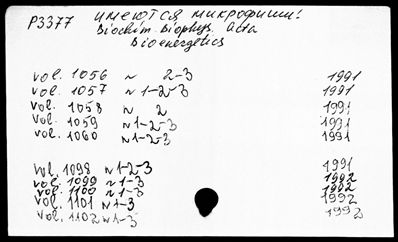 P3377 имеются микрофиши!
Biochim. Biophys. Acta
Bioenergetics
vol. 1056 N 2-3 1991
vol. 1057 N 1-2-3 1991
vol. 1058 N 2 1991
vol. 1059 N 1-2-3 1991
vol. 1060 N 1-2-3 1991
vol. 1098 N 1-2-3 1991
vol. 1099 N 1-3 1992
vol. 1100 N 1-3 1992
vol. 1101 N 1-3 1992
vol. 1102 N 1-3 1992